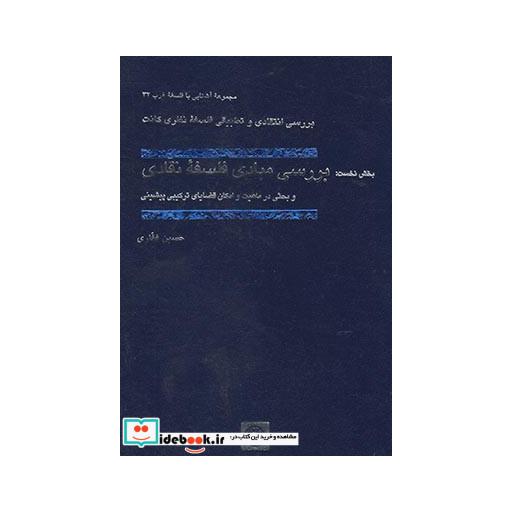 مجموعهٔ آشنایی با فلسفهٔ غرب ۳۲
بررسی انتقادی و تطبیقی فلسفهٔ نظری کانت
بخش نخست: بررسی مبادی فلسفهٔ نقادی
و بحثی در ماهیت و امکان قضایای ترکیبی پیشینی
حسین غفاری
iidebook.ir
مشاهده و خرید این کتاب در: